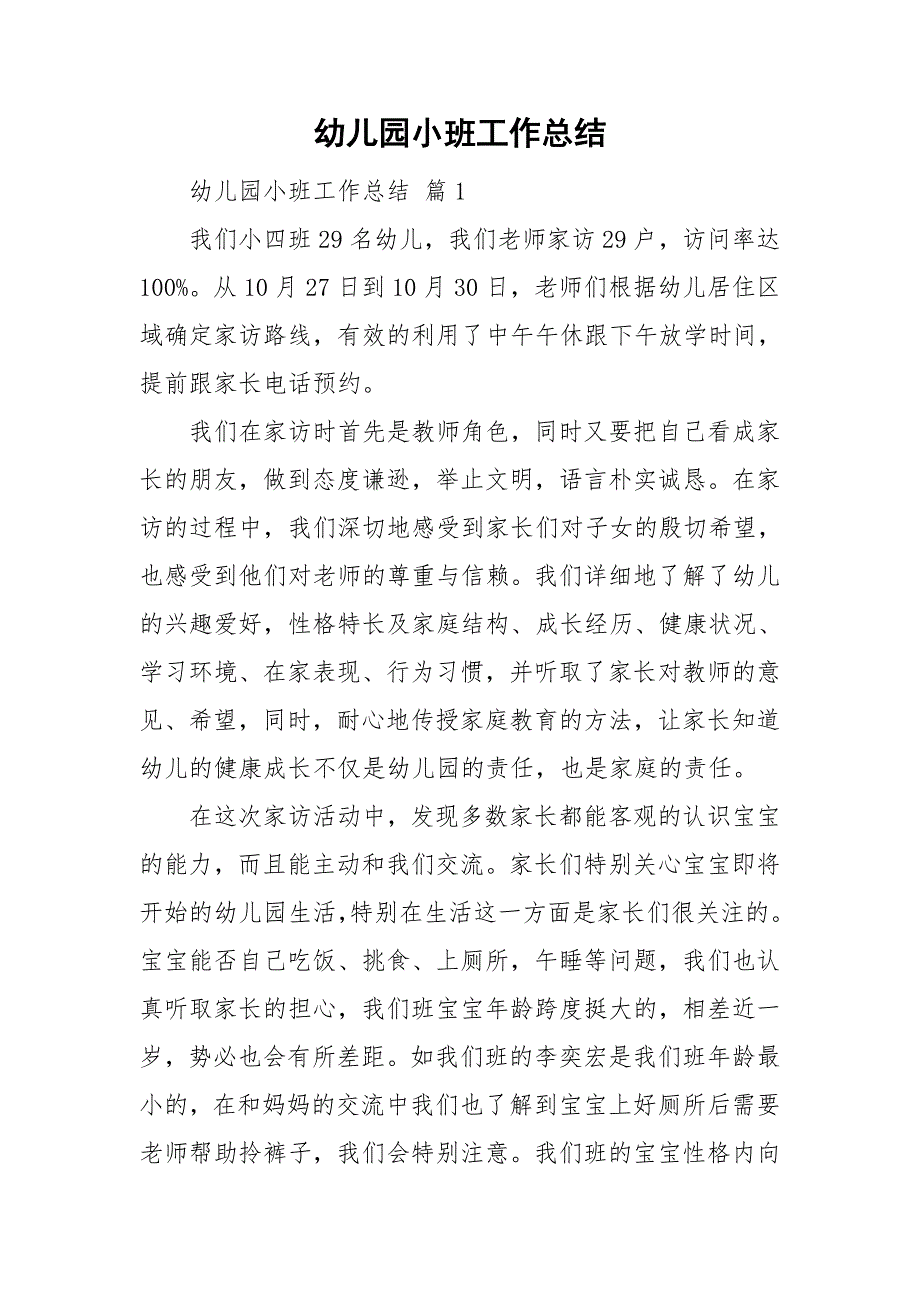 幼儿园小班工作总结
幼儿园小班工作总结 篇1
我们小四班29名幼儿，我们老师家访29户，访问率达
100%。从10月27日到10月30日，老师们根据幼儿居住区
域确定家访路线，有效的利用了中午午休跟下午放学时间，
提前跟家长电话预约。
我们在家访时首先是教师角色，同时又要把自己看成家
长的朋友，做到态度谦逊，举止文明，语言朴实诚恳。在家
访的过程中，我们深切地感受到家长们对子女的殷切希望，
也感受到他们对老师的尊重与信赖。我们详细地了解了幼儿
的兴趣爱好，性格特长及家庭结构、成长经历、健康状况、
学习环境、在家表现、行为习惯，并听取了家长对教师的意
见、希望，同时，耐心地传授家庭教育的方法，让家长知道
幼儿的健康成长不仅是幼儿园的责任，也是家庭的责任。
在这次家访活动中，发现多数家长都能客观的认识宝宝
的能力，而且能主动和我们交流。家长们特别关心宝宝即将
开始的幼儿园生活，特别在生活这一方面是家长们很关注的。
宝宝能否自己吃饭、挑食、上厕所，午睡等问题，我们也认
真听取家长的担心，我们班宝宝年龄跨度挺大的，相差近一
岁，势必也会有所差距。如我们班的李奕宏是我们班年龄最
小的，在和妈妈的交流中我们也了解到宝宝上好厕所后需要
老师帮助拎裤子，我们会特别注意。我们班的宝宝性格内向